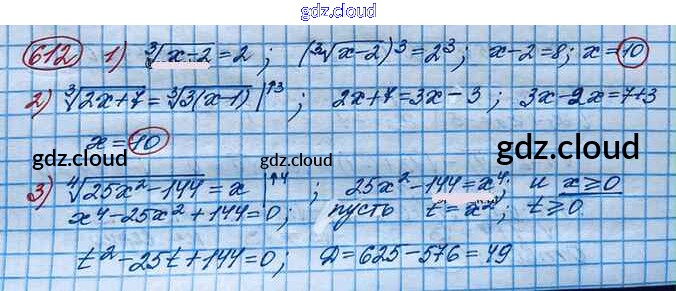 gdz.cloud
612 1) ∛(x-2) = 2; (∛(x-2))³ = 2³; x-2=8; x=10
2) ∛(2x+7) = ∛(3(x-1)) |↑3; 2x+7=3x-3; 3x-2x=7+3
x=10
gdz.cloud gdz.cloud gdz.cloud
3) ⁴√(25x²-144) = x |↑4; 25x²-144=x⁴; и x≥0
x⁴-25x²+144=0; пусть t=x²; t≥0
gdz.cloud gdz.cloud
t²-25t+144=0; D=625-576=49